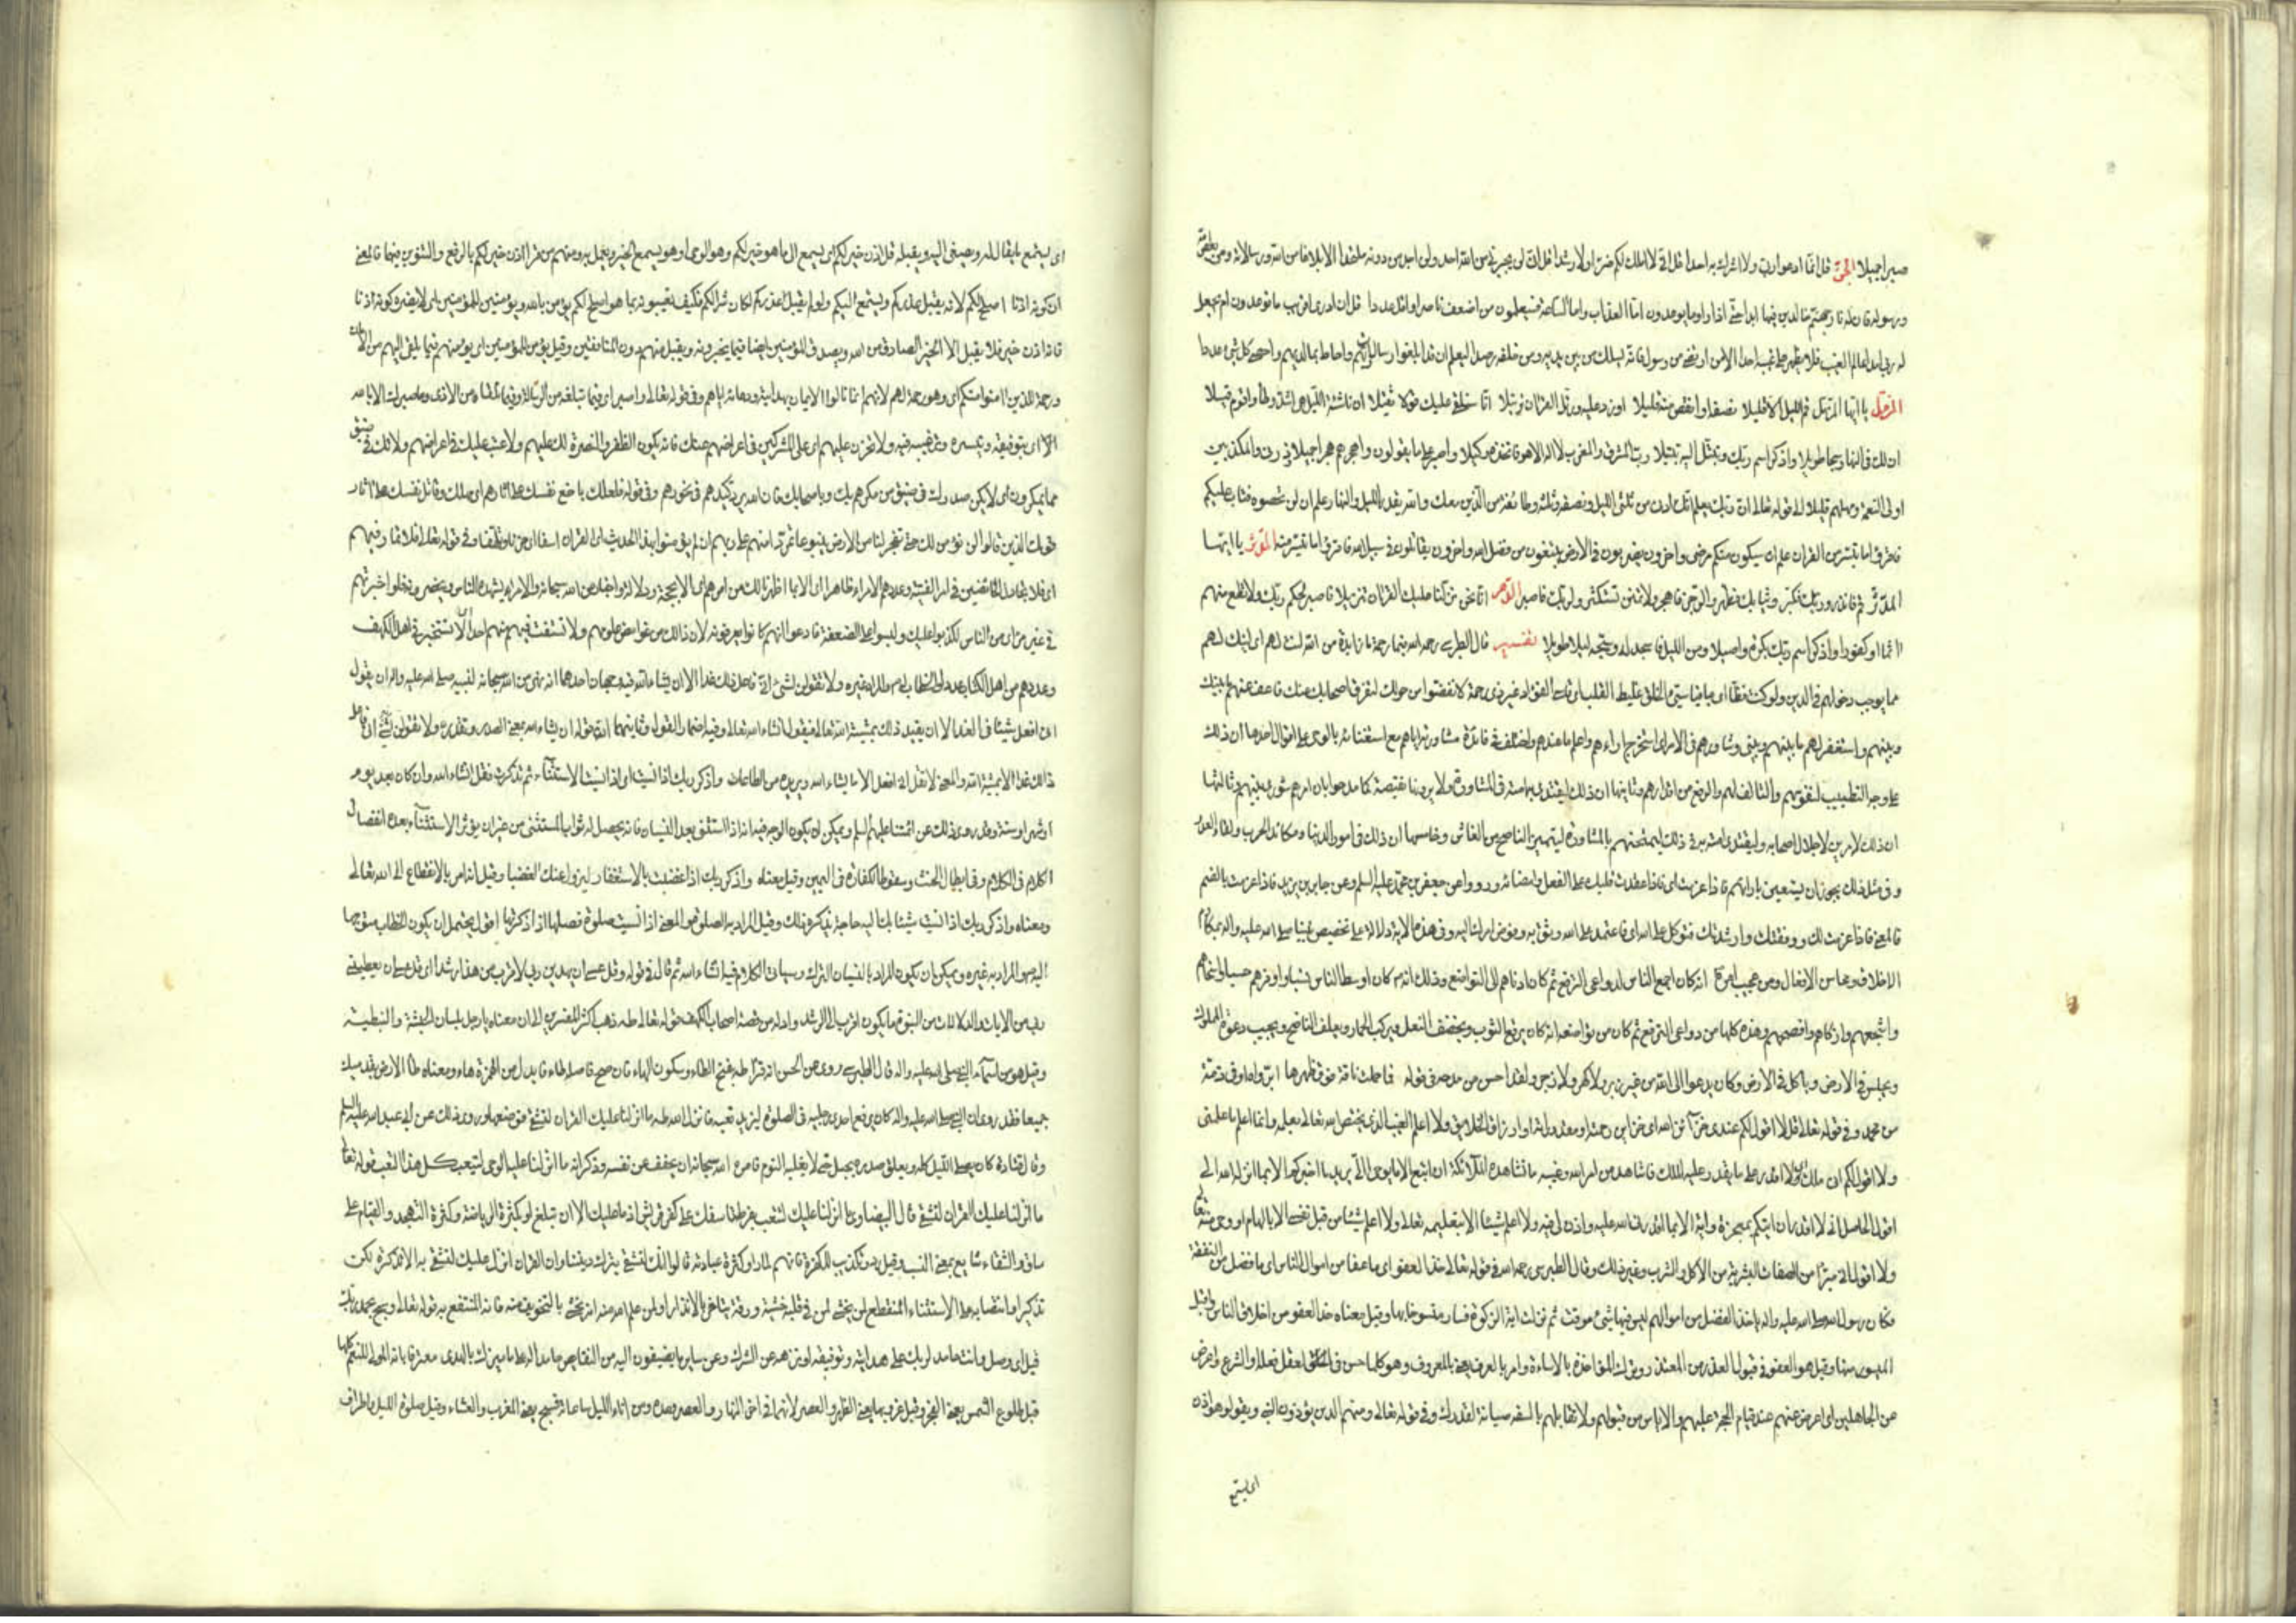 صبرا جميلا الجن قل انما ادعوا ربي ولا اشرك به احدا قل اني لا املك لكم ضرا ولا رشدا قل اني لن يجيرني من الله احد ولن اجد من دونه ملتحدا الا بلاغا من الله ورسالاته ومن يعص الله
ورسوله فان له نار جهنم خالدين فيها ابدا حتى اذا راوا ما يوعدون اما العذاب واما الساعة فسيعلمون من اضعف ناصرا واقل عددا قل ان ادري اقريب ما توعدون ام يجعل
له ربي امدا عالم الغيب فلا يظهر على غيبه احدا الا من ارتضى من رسول فانه يسلك من بين يديه ومن خلفه رصدا ليعلم ان قد ابلغوا رسالات ربهم واحاط بما لديهم واحصى كل شئ عددا
المزمل يا ايها المزمل قم الليل الا قليلا نصفه او انقص منه قليلا او زد عليه ورتل القران ترتيلا انا سنلقي عليك قولا ثقيلا ان ناشئة الليل هي اشد وطأ واقوم قيلا
ان لك في النهار سبحا طويلا واذكر اسم ربك وتبتل اليه تبتيلا رب المشرق والمغرب لا اله الا هو فاتخذه وكيلا واصبر على ما يقولون واهجرهم هجرا جميلا وذرني والمكذبين
اولي النعمة ومهلهم قليلا الى قوله تعالى ان ربك يعلم انك تقوم ادنى من ثلثي الليل ونصفه وثلثه وطائفة من الذين معك والله يقدر الليل والنهار علم ان لن تحصوه فتاب عليكم
فاقرؤا ما تيسر من القران علم ان سيكون منكم مرضى واخرون يضربون في الارض يبتغون من فضل الله واخرون يقاتلون في سبيل الله فاقرؤا ما تيسر منه المدثر يا ايها
المدثر قم فانذر وربك فكبر وثيابك فطهر والرجز فاهجر ولا تمنن تستكثر ولربك فاصبر الدهر انا نحن نزلنا عليك القران تنزيلا فاصبر لحكم ربك ولا تطع منهم
اثما او كفورا واذكر اسم ربك بكرة واصيلا ومن الليل فاسجد له وسبحه ليلا طويلا تفسير قال الطبرسي رحمه الله فبما رحمة ما زايدة من الله لنت لهم اي لينك لهم
مما يوجب دخولهم في الدين ولو كنت فظا اي جافيا سيئ الخلق غليظ القلب اي قاسي الفؤاد غير ذي رحمة لانفضوا من حولك لتفرق اصحابك عنك فاعف عنهم ما بينك
وبينهم واستغفر لهم ما بينهم وبيني وشاورهم في الامر اي استخرج اراءهم واعلم ما عندهم واختلف في فائدة مشاورته اياهم مع استغنائه بالوحي على اقوال احدها ان ذلك
على وجه التطييب لنفوسهم والتالف لهم والرفع من اقدارهم وثانيها ان ذلك ليقتدي به امته في المشاورة ولا يرونها نقيصة كما مدحوا بان امرهم شورى بينهم وثالثها
ان ذلك لامرين لاجلال اصحابه وليقتدي امته به في ذلك ليمتحنهم بالمشاورة ليتميز الناصح من الغاش وخامسها ان ذلك في امور الدنيا ومكائد الحرب ولقاء العدو
وفي مثل ذلك يجوز ان يستعين بارائهم فاذا عزمت اي فاذا عقدت قلبك على الفعل وامضائه ورووا عن جعفر بن محمد عليه السلم وعن جابر بن يزيد فاذا عزمت بالضم
فالمعنى فاذا عزمت لك ووفقتك وارشدتك فتوكل على الله اي فاعتمد على الله وثق به وفوض امرك اليه وفي هذه الاية دلالة على تخصيص نبينا صلى الله عليه واله بمكارم
الاخلاق ومحاسن الافعال ومن عجيب امره انه كان اجمع الناس لدواعي الترفع ثم كان ادناهم الى التواضع وذلك انه كان اوسط الناس نسبا واوفرهم حسبا واسخاهم
واشجعهم وازكاهم وافصحهم وهذه كلها من دواعي الترفع ثم كان من تواضعه انه كان يرقع الثوب ويخصف النعل ويركب الحمار ويعلف الناضح ويجيب دعوة المملوك
ويجلس في الارض وياكل في الارض وكان يدعوا الى الله من غير زبر ولا كهر ولا زجر ولقد احسن من مدحه في قوله فما حملت ناقة فوق ظهرها ابر واوفى ذمة
من محمد وفي قوله تعالى قل لا اقول لكم عندي خزائن الله اي خزاين رحمته او مقدوراته او ارزاق الخلايق ولا اعلم الغيب الذي يختص الله تعالى بعلمه وانما اعلم ما علمني
ولا اقول لكم اني ملك اي لا اقدر على ما يقدر عليه الملك فاشاهد من امر الله وغيبه ما تشاهده الملائكة ان اتبع الا ما يوحى الي يريد ما اخبركم الا بما انزله الله الي
اقول الحاصل اني لا اقدر ان اتيكم بمعجزة واية الا بما اقدرني الله عليه واذن لي فيه ولا اعلم شيئا الا بتعليمه تعالى ولا اعلم شيئا من قبل نفسي الا بالهام او وحي منه تعالى
ولا اقول اني مبرا من الصفات البشرية من الاكل والشرب وغير ذلك وقال الطبرسي رحمه الله في قوله تعالى خذ العفو اي ما عفا من اموال الناس اي ما فضل من النفقة
فكان رسول الله صلى الله عليه واله ياخذ الفضل من اموالهم ليس فيها شئ موقت ثم نزلت اية الزكوة فصار منسوخا بها وقيل معناه خذ العفو من اخلاق الناس واقبل
الميسور منها وقيل هو العفو في قبول العذر من المعتذر وترك المؤاخذة بالاساءة وامر بالعرف يعني بالمعروف وهو كلما حسن في العقل فعله او الشرع واعرض
عن الجاهلين اي اعرض عنهم عند قيام الحجة عليهم والاياس من قبولهم ولا تقابلهم بالسفه صيانة لقدرك وفي قوله تعالى ومنهم الذين يؤذون النبي ويقولون هو اذن
اي يستمع
اي يستمع ما يقال له ويصغي اليه ويقبله قل اذن خير لكم اي يسمع الى ما هو خير لكم وهو الوحي او هو يسمع الخير ويعمل به ومنهم من قرا اذن خير لكم بالرفع والتنوين فيهما فالمعنى
ان كونه اذنا اصلح لكم لانه يقبل عذركم ويستمع اليكم ولو لم يقبل عذركم لكان شرا لكم فكيف تعيبونه بما هو اصلح لكم يؤمن بالله ويؤمن للمؤمنين اي لا يضره كونه اذنا
فانه اذن خير فلا يقبل الا الخبر الصادق من الله ويصدق المؤمنين ايضا فيما يخبرونه ويقبل منهم دون المنافقين وقيل يؤمن للمؤمنين اي يؤمنهم فيما يلقى اليهم من الامان
ورحمة للذين امنوا منكم اي وهو رحمة لهم لانهم انما نالوا الايمان بهدايته ودعائه اياهم وفي قوله تعالى واصبر اي فيما تبلغه من الرسالة وفيما تلقاه من الاذى وما صبرك الا بالله
الا اي بتوفيقه وتيسيره وترغيبه فيه ولا تحزن عليهم اي على المشركين في اعراضهم عنك فانه يكون الظفر والنصرة لك عليهم ولا عتب عليك في اعراضهم ولا تك في ضيق
مما يمكرون اي لا يكن صدرك في ضيق من مكرهم بك وباصحابك فان الله يرد كيدهم في نحورهم وفي قوله فلعلك باخع نفسك على اثارهم اي مهلك وقاتل نفسك على اثار
قومك الذين قالوا لن نؤمن لك حتى تفجر لنا من الارض ينبوعا تمردا منهم على ربهم ان لم يؤمنوا بهذا الحديث اي القران اسفا اي حزنا وتلهفا وفي قوله تعالى فلا تمار فيهم
اي فلا تجادل الخائضين في امر الفتية وعددهم الا مراء ظاهرا اي الا بما اظهرنا لك من امرهم اي الا بحجة ودلالة واخبار من الله سبحانه والا مراء يشهده الناس ويحضرونه فلو اخبرتهم
في غير مرأى من الناس لكذبوا عليك ولبسوا على الضعفة فادعوا انهم كانوا يعرفونه لان ذلك من غوامض علومهم ولا تستفت فيهم منهم احدا اي لا تستخبر في اهل الكهف
وعددهم من اهل الكتاب احدا والخطاب له والمراد غيره ولا تقولن لشئ اني فاعل ذلك غدا الا ان يشاء الله فيه وجهان احدهما انه نهي من الله سبحانه لنبيه صلى الله عليه واله ان يقول
اني افعل شيئا في الغد الا ان يقيد ذلك بمشية الله تعالى فيقول انشاء الله تعالى وفيه اضمار القول وثانيهما ان قوله ان يشاء الله بمعنى المصدر وتقديره ولا تقولن لشئ اني فاعل
ذلك غدا الا بمشية الله والمعنى لا تقل اني افعل الا ما يشاء الله ويريده من الطاعات واذكر ربك اذا نسيت اي اذا نسيت الاستثناء ثم تذكرت فقل انشاء الله وان كان بعد يوم
او شهر او سنة وقد روي ذلك عن ائمتنا عليهم السلم ويمكن ان يكون الوجه فيه انه اذا استثنى بعد النسيان فانه يحصل له ثواب المستثني من غير ان يؤثر الاستثناء بعد انفصال
الكلام في الكلام وفي ابطال الحنث وسقوط الكفارة في اليمين وقيل معناه واذكر ربك اذا غضبت بالاستغفار ليزول عنك الغضب وقيل انه امر بالانقطاع الى الله تعالى
ومعناه واذكر ربك اذا نسيت شيئا بك اليه حاجة يذكره لك وقيل المراد به الصلوة والمعنى اذا نسيت صلوة فصلها اذا ذكرتها اقول يحتمل ان يكون الخطاب متوجها
اليه والمراد به غيره ويمكن ان يكون المراد بالنسيان الترك وسياق الكلام فيه انشاء الله ثم قال في قوله وقل عسى ان يهدين ربي لاقرب من هذا رشدا اي قل عسى ان يعطيني
ربي من الايات والدلالات من النبوة ما يكون اقرب الى الرشد وادل من قصة اصحاب الكهف قوله تعالى طه ذهب اكثر المفسرين الى ان معناه يا رجل بلسان الحبشة والنبطية
وقيل هو من اسماء النبي صلى الله عليه واله قال الطبرسي روي عن الحسن انه قرا طه بفتح الطاء وسكون الهاء فان صح فاصله طاء فابدل من الهمزة هاء ومعناه طا الارض بقدميك
جميعا فقد روي ان النبي صلى الله عليه واله كان يرفع احدى رجليه في الصلوة ليزيد تعبه فانزل الله طه ما انزلنا عليك القران لتشقى فوضعها وروي ذلك عن ابي عبد الله عليه السلم
وقال قتادة كان يصلي الليل كله ويعلق صدره بحبل حتى لا يغلبه النوم فامره الله سبحانه ان يخفف عن نفسه وذكر انه ما انزلنا عليه الوحي ليتعب كل هذا التعب قوله تعالى
ما انزلنا عليك القران لتشقى قال البيضاوي ما انزلنا عليك لتتعب بفرط تاسفك على كفر قريش اذ ما عليك الا ان تبلغ او بكثرة الرياضة وكثرة التهجد والقيام على
ساق والشقاء شايع بمعنى التعب وقيل رد وتكذيب للكفرة فانهم لما راوا كثرة عبادته قالوا انك لتشقى بترك ديننا وان القران انزل عليك لتشقى به الا تذكرة لكن
تذكيرا وانتصابه على الاستثناء المنقطع لمن يخشى لمن في قلبه خشية ورقة يتاثر بالانذار او لمن علم الله منه انه يخشى بالتخويف منه فانه المنتفع به قوله تعالى وسبح بحمد ربك
قيل اي وصل وانت حامد لربك على هدايته وتوفيقه او نزهه عن الشرك وعن ساير ما يضيفون اليه من النقايص حامدا له على ما ميزك بالهدى معترفا بانه المولى للنعم كلها
قبل طلوع الشمس يعني الفجر وقبل غروبها يعني الظهر والعصر لانهما في اخر النهار او العصر وحده ومن اناء الليل ساعاته فسبح يعني المغرب والعشاء وقيل صلوة الليل واطراف